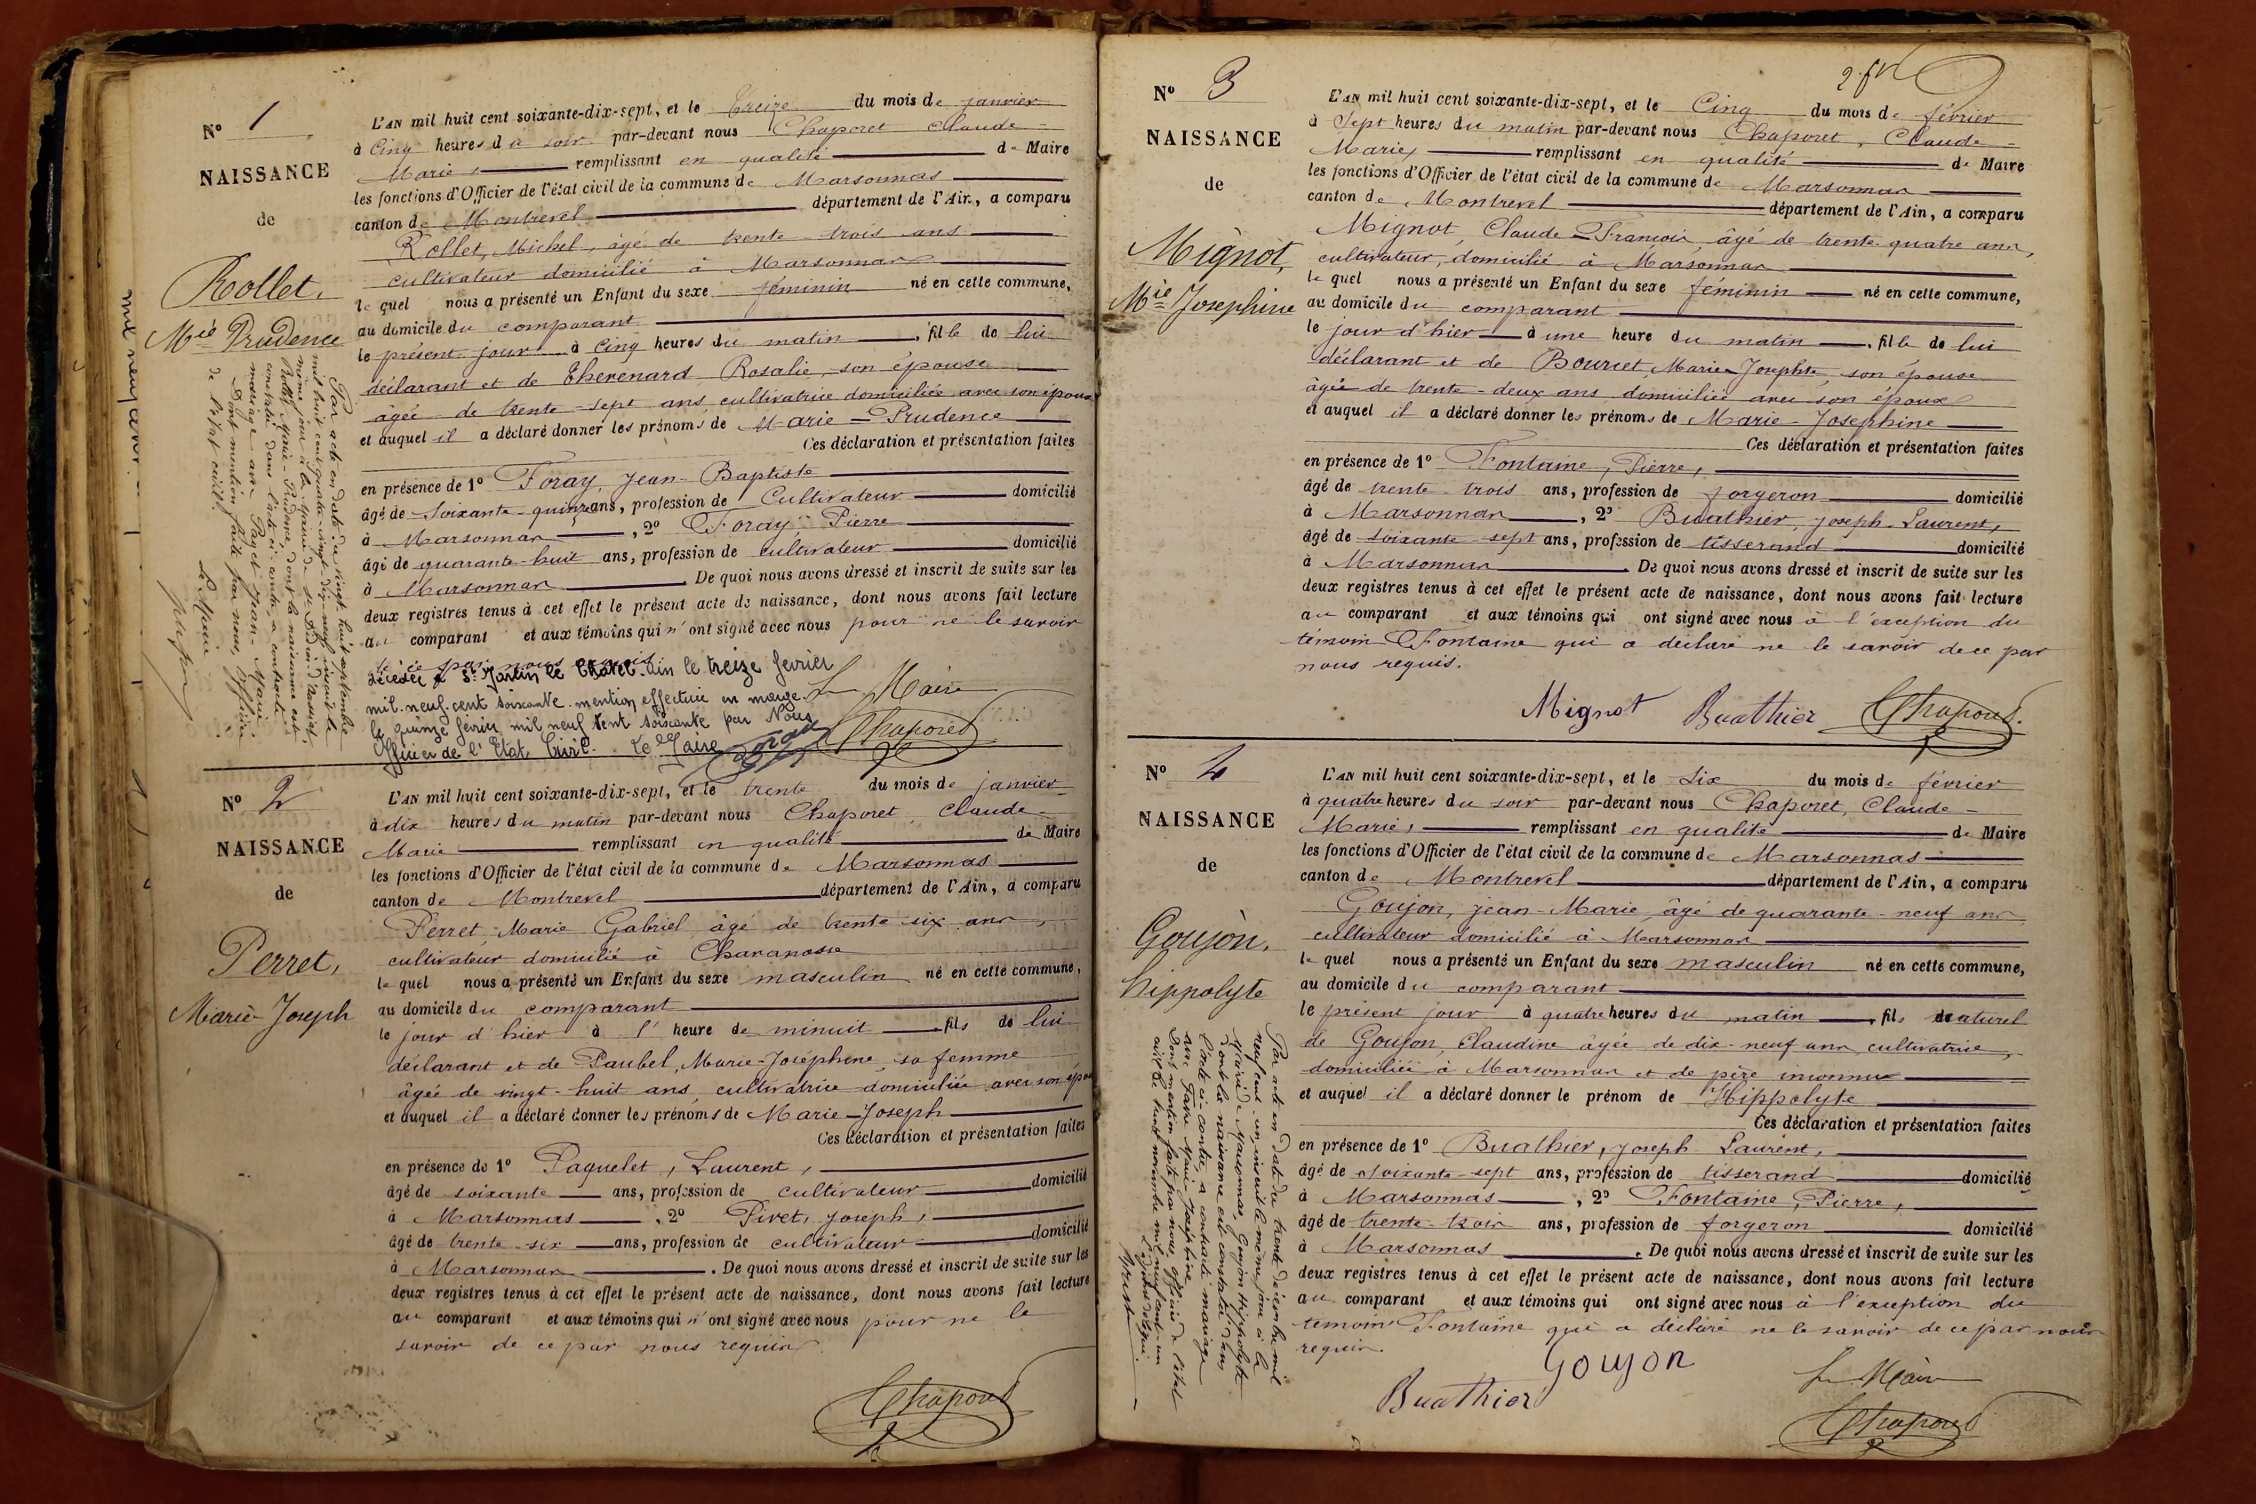 N° 1
NAISSANCE
de
Rollet,
Mie Prudence
L'AN mil huit cent soixante-dix-sept, et le treize du mois de janvier
à cinq heures du soir par-devant nous Chaporet Claude-
Marie, remplissant en qualité de Maire
les fonctions d'Officier de l'état civil de la commune de Marsonnas
canton de Montrevel département de l'Ain, a comparu
Rollet, Michel, âgé de trente-trois ans
cultivateur domicilié à Marsonnas
le quel nous a présenté un Enfant du sexe féminin né en cette commune,
au domicile du comparant
le présent jour à cinq heures du matin, fille de lui
déclarant et de Thevenard Rosalie, son épouse
âgée de trente-sept ans, cultivatrice domiciliée avec son époux
et auquel il a déclaré donner les prénoms de Marie-Prudence
Ces déclaration et présentation faites
en présence de 1° Foray, Jean-Baptiste
âgé de soixante-quinze ans, profession de Cultivateur domicilié
à Marsonnas, 2° Foray, Pierre
âgé de quarante-huit ans, profession de cultivateur domicilié
à Marsonnas. De quoi nous avons dressé et inscrit de suite sur les
deux registres tenus à cet effet le présent acte de naissance, dont nous avons fait lecture
au comparant et aux témoins qui n'ont signé avec nous pour ne le savoir
de ce par nous requis
décédée à St Martin le Chatel. Ain le treize février
mil-neuf-cent soixante. mention effectuée en marge.
le quinze février mil neuf cent soixante par Nous
Officier de l'Etat Civil. Le Maire
Le Maire
Chaporet
Par acte en date du vingt huit septembre
mil huit cent quatre-vingt-dix-neuf inscrit le
même jour à la Mairie de
Rollet Marie-Prudence, dont la naissance est
constatée dans l'acte ci-contre a contracté
mariage avec Jean-Marie.
Dont mention faite par nous, Officier
de l'état civil.
Le Maire
N° 2
NAISSANCE
de
Perret,
Marie-Joseph
L'AN mil huit cent soixante-dix-sept, et le trente du mois de janvier
à dix heures du matin par-devant nous Chaporet, Claude-
Marie remplissant en qualité de Maire
les fonctions d'Officier de l'état civil de la commune de Marsonnas
canton de Montrevel département de l'Ain, a comparu
Perret, Marie Gabriel, âgé de trente-six ans,
cultivateur domicilié à Charanasse
le quel nous a présenté un Enfant du sexe masculin né en cette commune,
au domicile du comparant
le jour d'hier à l'heure de minuit, fils de lui
déclarant et de Paubel, Marie-Joséphine, sa femme
âgée de vingt-huit ans, cultivatrice domiciliée avec son époux
et auquel il a déclaré donner les prénoms de Marie-Joseph
Ces déclaration et présentation faites
en présence de 1° Paquelet, Laurent,
âgé de soixante ans, profession de cultivateur domicilié
à Marsonnas, 2° Pivet, Joseph,
âgé de trente-six ans, profession de cultivateur domicilié
à Marsonnas. De quoi nous avons dressé et inscrit de suite sur les
deux registres tenus à cet effet le présent acte de naissance, dont nous avons fait lecture
au comparant et aux témoins qui n'ont signé avec nous pour ne le
savoir de ce par nous requis.
Chaporet
N° 3
NAISSANCE
de
Mignot,
Mie Josephine
L'AN mil huit cent soixante-dix-sept, et le Cinq du mois de février
à Sept heures du matin par-devant nous Chaporet, Claude-
Marie, remplissant en qualité de Maire
les fonctions d'Officier de l'état civil de la commune de Marsonnas
canton de Montrevel département de l'Ain, a comparu
Mignot, Claude-François, âgé de trente-quatre ans,
cultivateur, domicilié à Marsonnas
le quel nous a présenté un Enfant du sexe féminin né en cette commune,
au domicile du comparant
le jour d'hier à une heure du matin, fille de lui
déclarant et de Bourcet, Marie-Josephte, son épouse
âgée de trente-deux ans, domiciliée avec son époux
et auquel il a déclaré donner les prénoms de Marie-Josephine
Ces déclaration et présentation faites
en présence de 1° Fontaine, Pierre,
âgé de trente-trois ans, profession de forgeron domicilié
à Marsonnas, 2° Buathier, Joseph-Laurent,
âgé de soixante-sept ans, profession de tisserand domicilié
à Marsonnas. De quoi nous avons dressé et inscrit de suite sur les
deux registres tenus à cet effet le présent acte de naissance, dont nous avons fait lecture
au comparant et aux témoins qui ont signé avec nous à l'exception du
témoin Fontaine qui a déclaré ne le savoir de ce par
nous requis.
Mignot Buathier Chaporet
N° 4
NAISSANCE
de
Goujon,
hippolyte
L'AN mil huit cent soixante-dix-sept, et le Six du mois de février
à quatre heures du soir par-devant nous Chaporet, Claude-
Marie, remplissant en qualité de Maire
les fonctions d'Officier de l'état civil de la commune de Marsonnas
canton de Montrevel département de l'Ain, a comparu
Goujon, Jean-Marie, âgé de quarante-neuf ans
cultivateur domicilié à Marsonnas
le quel nous a présenté un Enfant du sexe masculin né en cette commune,
au domicile du comparant
le présent jour à quatre heures du matin, fils naturel
de Goujon, Claudine âgée de dix-neuf ans, cultivatrice,
domiciliée à Marsonnas et de père inconnu
et auquel il a déclaré donner le prénom de Hippolyte
Ces déclaration et présentation faites
en présence de 1° Buathier, Joseph-Laurent,
âgé de soixante-sept ans, profession de tisserand domicilié
à Marsonnas, 2° Fontaine, Pierre,
âgé de trente-trois ans, profession de forgeron domicilié
à Marsonnas. De quoi nous avons dressé et inscrit de suite sur les
deux registres tenus à cet effet le présent acte de naissance, dont nous avons fait lecture
au comparant et aux témoins qui ont signé avec nous à l'exception du
témoin Fontaine qui a déclaré ne le savoir de ce par nous
requis.
Goujon
Buathier
Le Maire
Chaporet
Par acte en date du trente décembre mil
neuf cent un inscrit le même jour à la
Mairie de Marsonnas, Goujon Hippolyte
dont la naissance est constatée dans
l'acte ci-contre, a contracté mariage
avec Favre Marie-Joséphine
Dont mention faite par nous, officier de l'état
civil le trente novembre mil neuf cent un